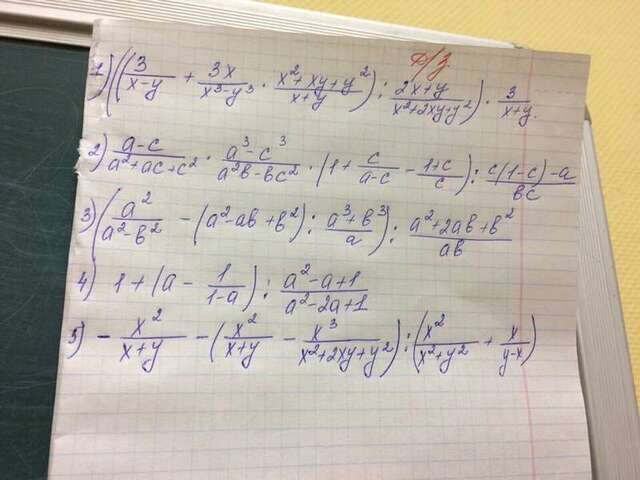 Д/з.
1) ((3/(x-y) + 3x/(x³-y³) · (x²+xy+y²)/(x+y)) : (2x+y)/(x²+2xy+y²)) · 3/(x+y).
2) (a-c)/(a²+ac+c²) · (a³-c³)/(a²b-bc²) · (1 + c/(a-c) - (1+c)/c) : (c(1-c)-a)/(bc)
3) (a²/(a²-b²) - (a²-ab+b²) : (a³+b³)/a) : (a²+2ab+b²)/(ab)
4) 1 + (a - 1/(1-a)) : (a²-a+1)/(a²-2a+1)
5) - x²/(x+y) - (x²/(x+y) - x³/(x²+2xy+y²)) : (x²/(x²+y²) + x/(y-x))